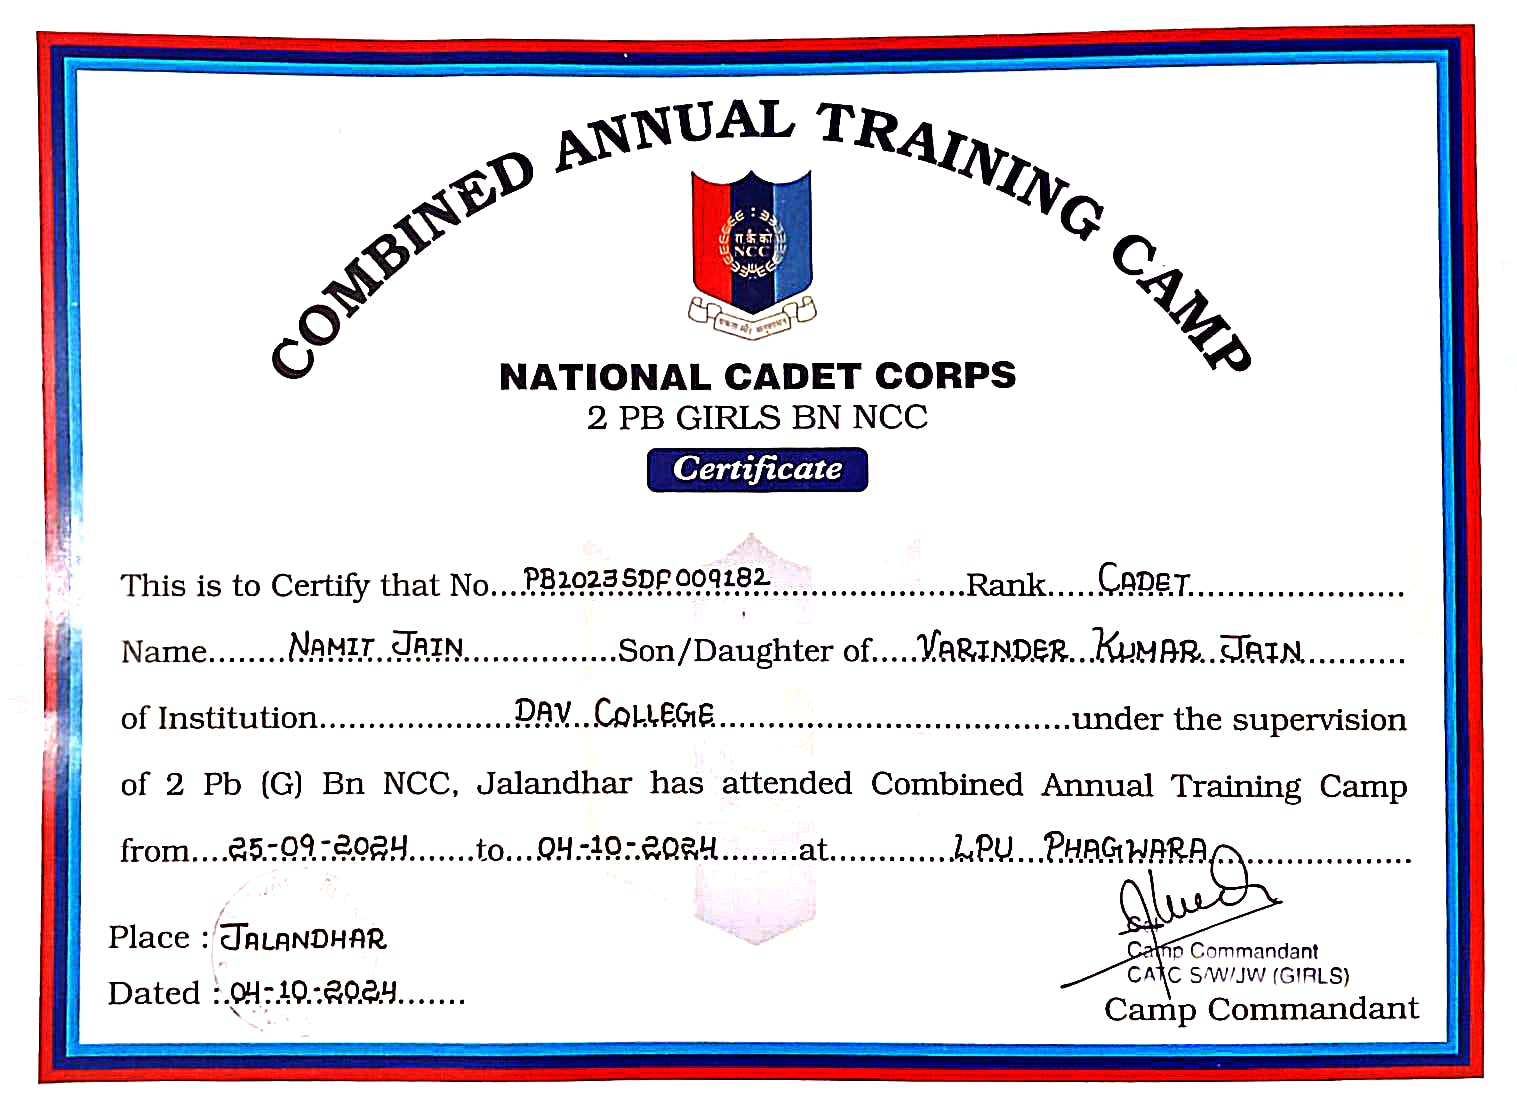 COMBINED ANNUAL TRAINING CAMP
रा कै को
NCC
एकता और अनुशासन
NATIONAL CADET CORPS
2 PB GIRLS BN NCC
Certificate
This is to Certify that No....PB2023SDF009182....................Rank.....CADET......................
Name........NAMIT JAIN...............Son/Daughter of.....VARINDER KUMAR JAIN..........
of Institution....................DAV COLLEGE....................................under the supervision
of 2 Pb (G) Bn NCC, Jalandhar has attended Combined Annual Training Camp
from....25-09-2024.......to...04-10-2024........at............LPU PHAGWARA....................
Place : JALANDHAR
Camp Commandant
CATC S/W/JW (GIRLS)
Dated : 04-10-2024.......
Camp Commandant